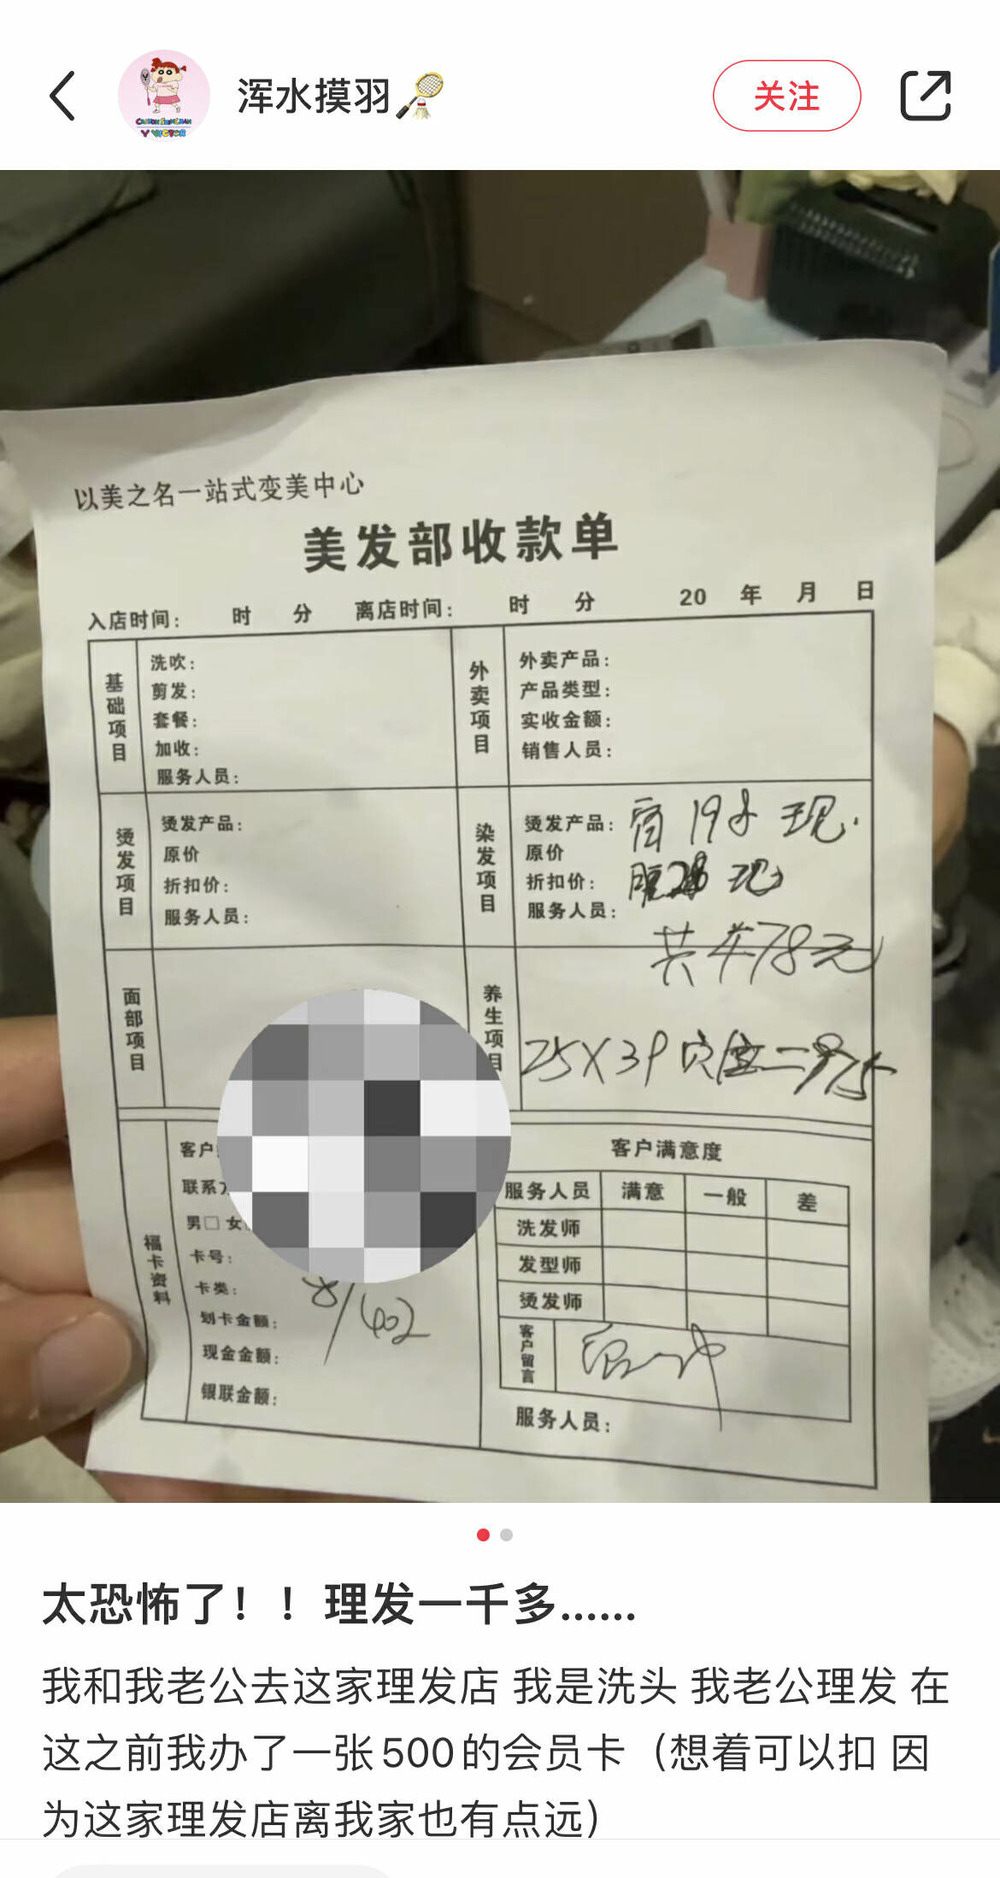 浑水摸羽
关注
以美之名一站式变美中心
美发部收款单
入店时间： 时 分 离店时间： 时 分 20 年 月 日
基础项目
洗吹：
剪发：
套餐：
加收：
服务人员：
外卖项目
外卖产品：
产品类型：
实收金额：
销售人员：
烫发项目
烫发产品：
原价
折扣价：
服务人员：
染发项目
烫发产品： 198 现
原价
折扣价： 现
服务人员：
共478元
面部项目
养生项目
25X39
福卡资料
客户
联系
男□ 女
卡号：
卡类：
划卡金额：
现金金额：
银联金额：
客户满意度
服务人员 满意 一般 差
洗发师
发型师
烫发师
客户留言
服务人员：
太恐怖了！！理发一千多......
我和我老公去这家理发店 我是洗头 我老公理发 在
这之前我办了一张500的会员卡（想着可以扣 因
为这家理发店离我家也有点远）